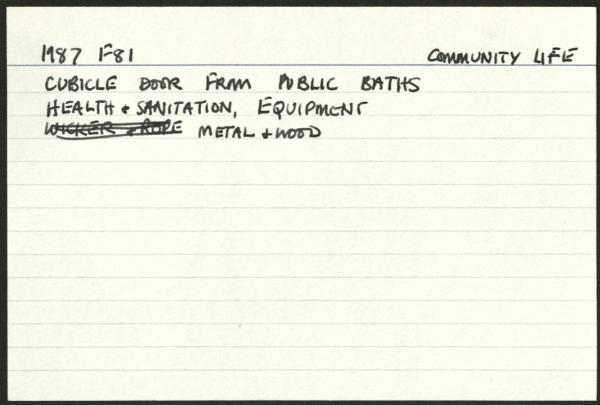 1987 F81 COMMUNITY LIFE
CUBICLE DOOR FROM PUBLIC BATHS
HEALTH + SANITATION, EQUIPMENT
WICKER + ROPE METAL + WOOD